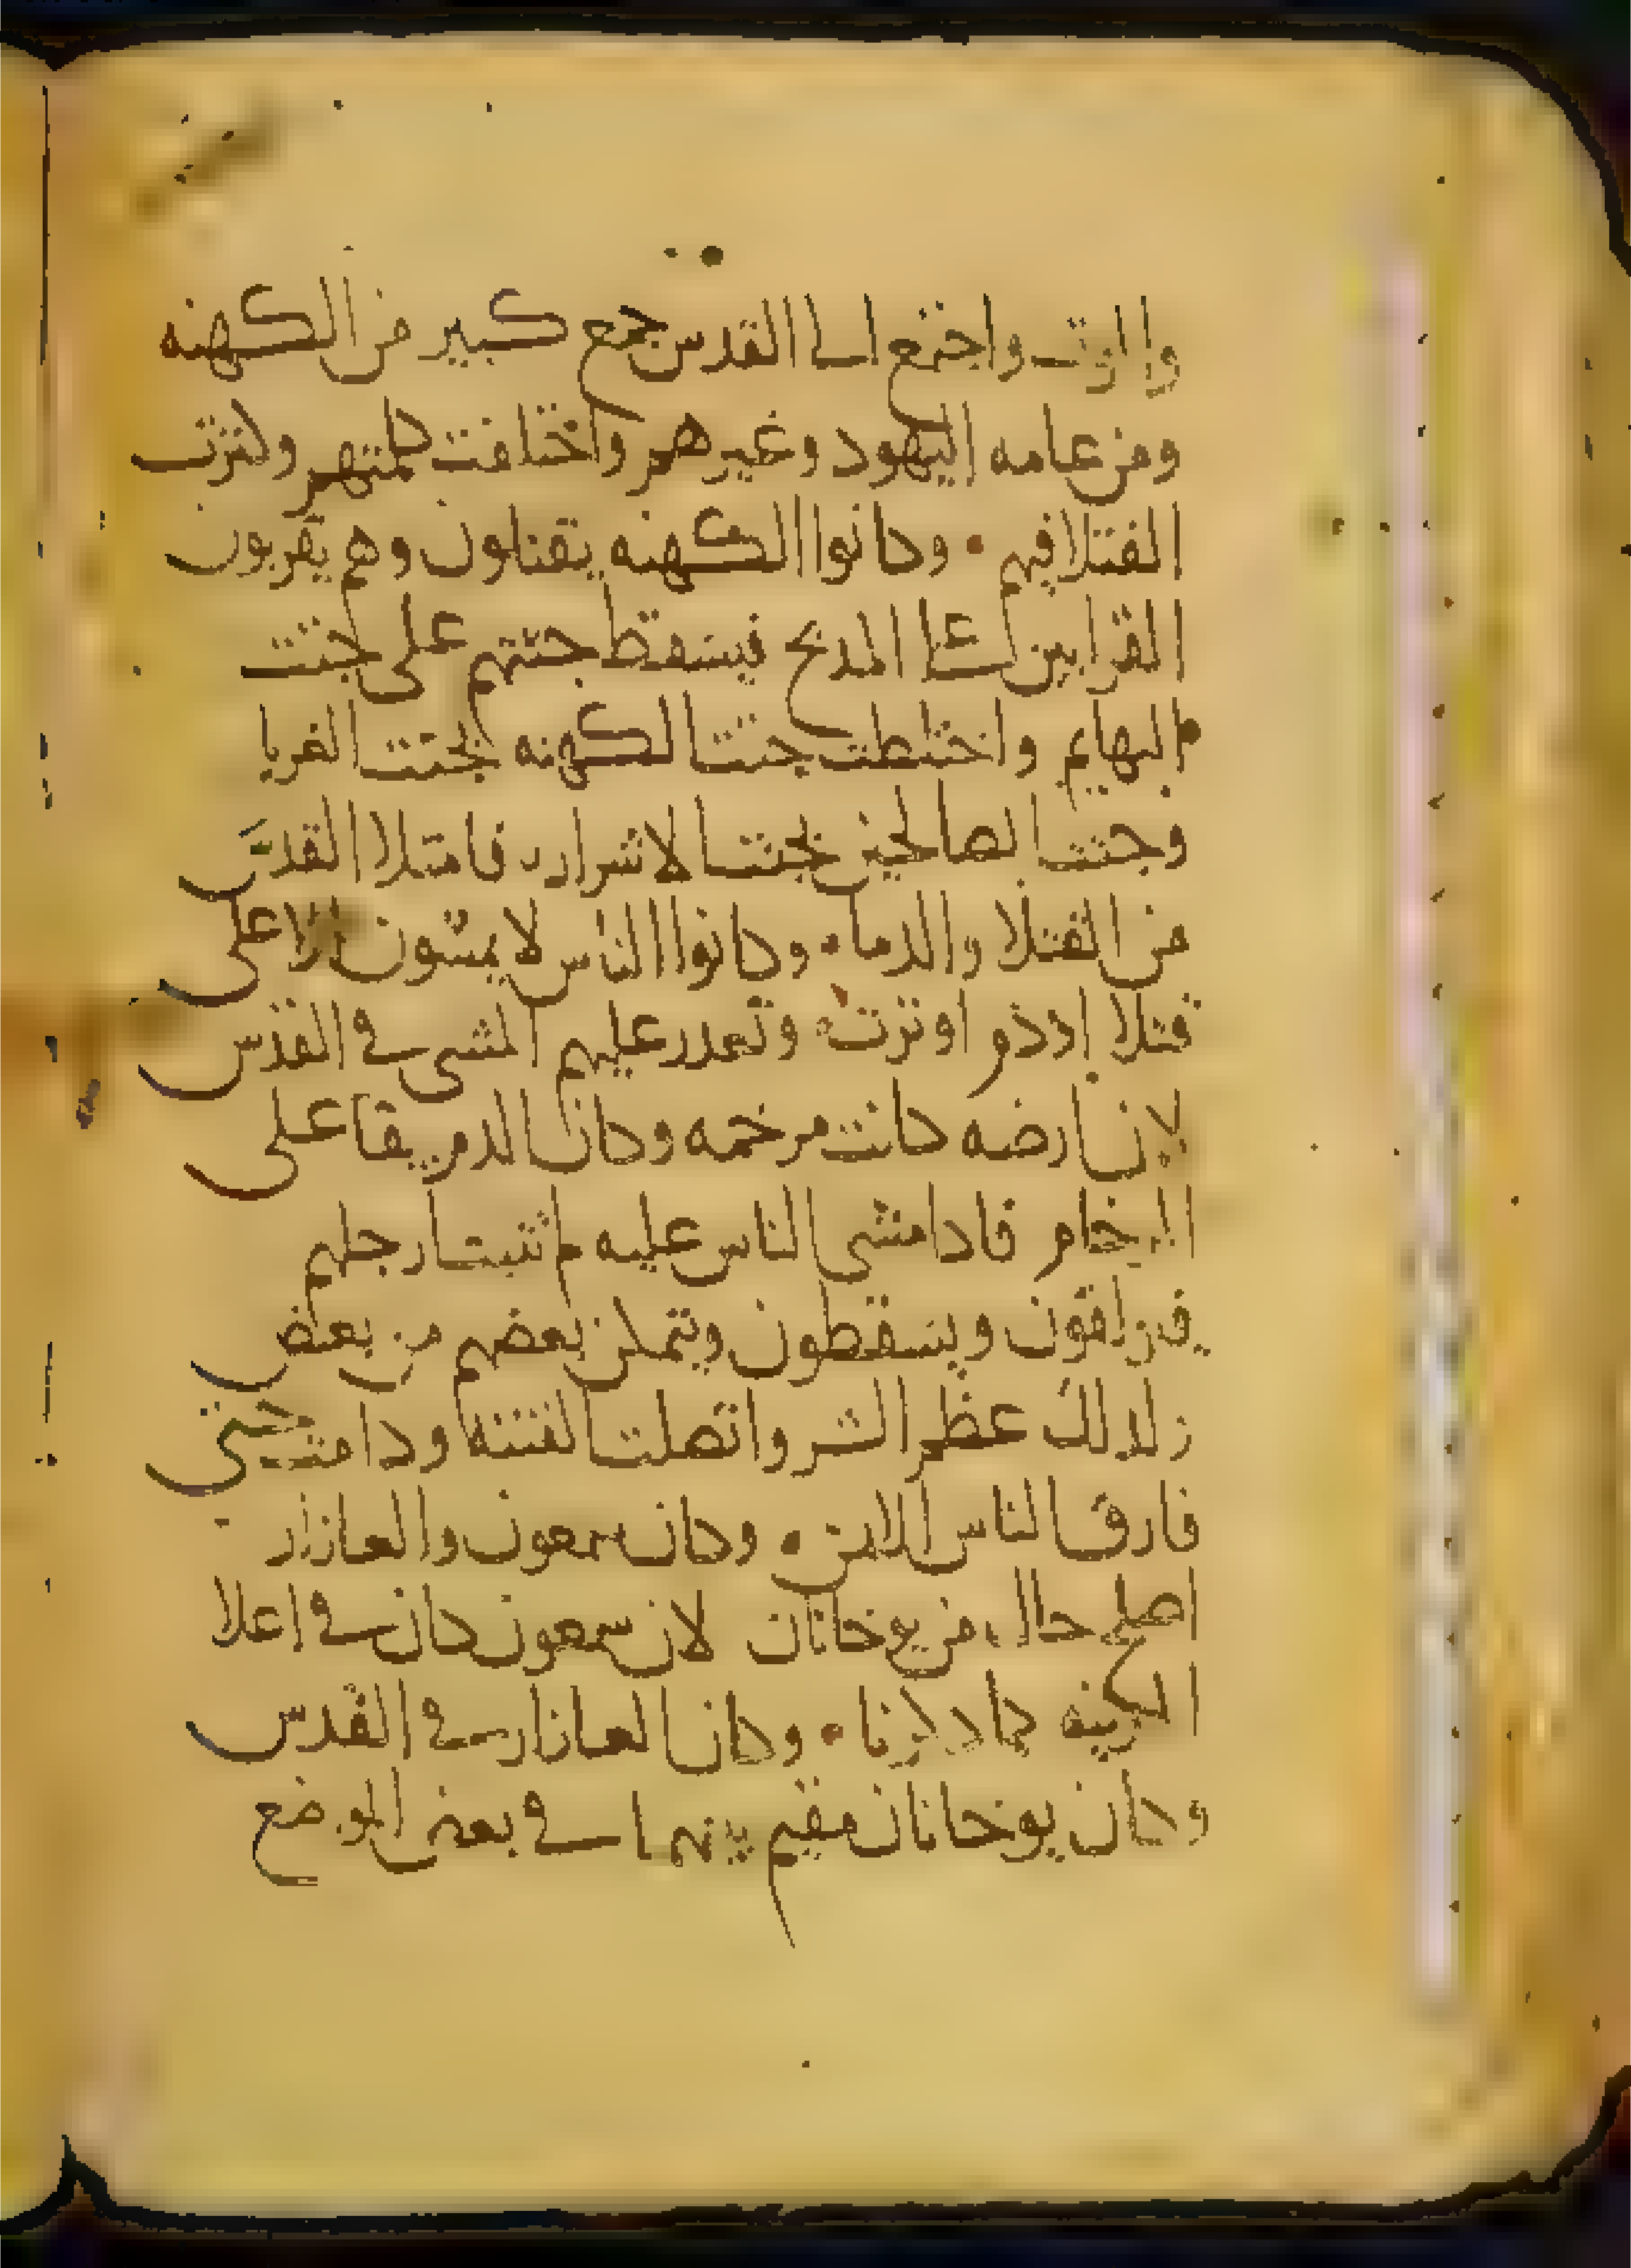 والزيت واجتمع الى القدس جمع كبير من الكهنه
ومن عامه اليهود وغيرهم واختلفت كلمتهم وكثرت
القتلا فيهم • وكانوا الكهنه يقتلون وهم يقربون
القرابين على المدبح فيسقط جثتهم على جثت
البهايم واختلطت جثت الكهنه بجثت الغربا
وجثت الصالحين بجثت الاشرار فامتلا القدس
من القتلا والدما • وكانوا الناس لا يمشون الا على
قتلا او دم او ترث وتعدر عليهم المشى في القدس
لان ارضه كانت مرخمه وكان الدم يبقا على
الرخام فادا مشى الناس عليه لم تثبت ارجلهم
فيزلقون ويسقطون ويتمكن بعضهم من بعض
لدلك عظم الشر واتصلت الفتنه ودامت حتى
فارق الناس الامن • وكان سمعون والعازار
اصلح حال من يوخانان لان سمعون كان في اعلا
المدينه كما دكرنا • وكان العازار في القدس
وكان يوخانان مقيم بينهما في بعض الموضع